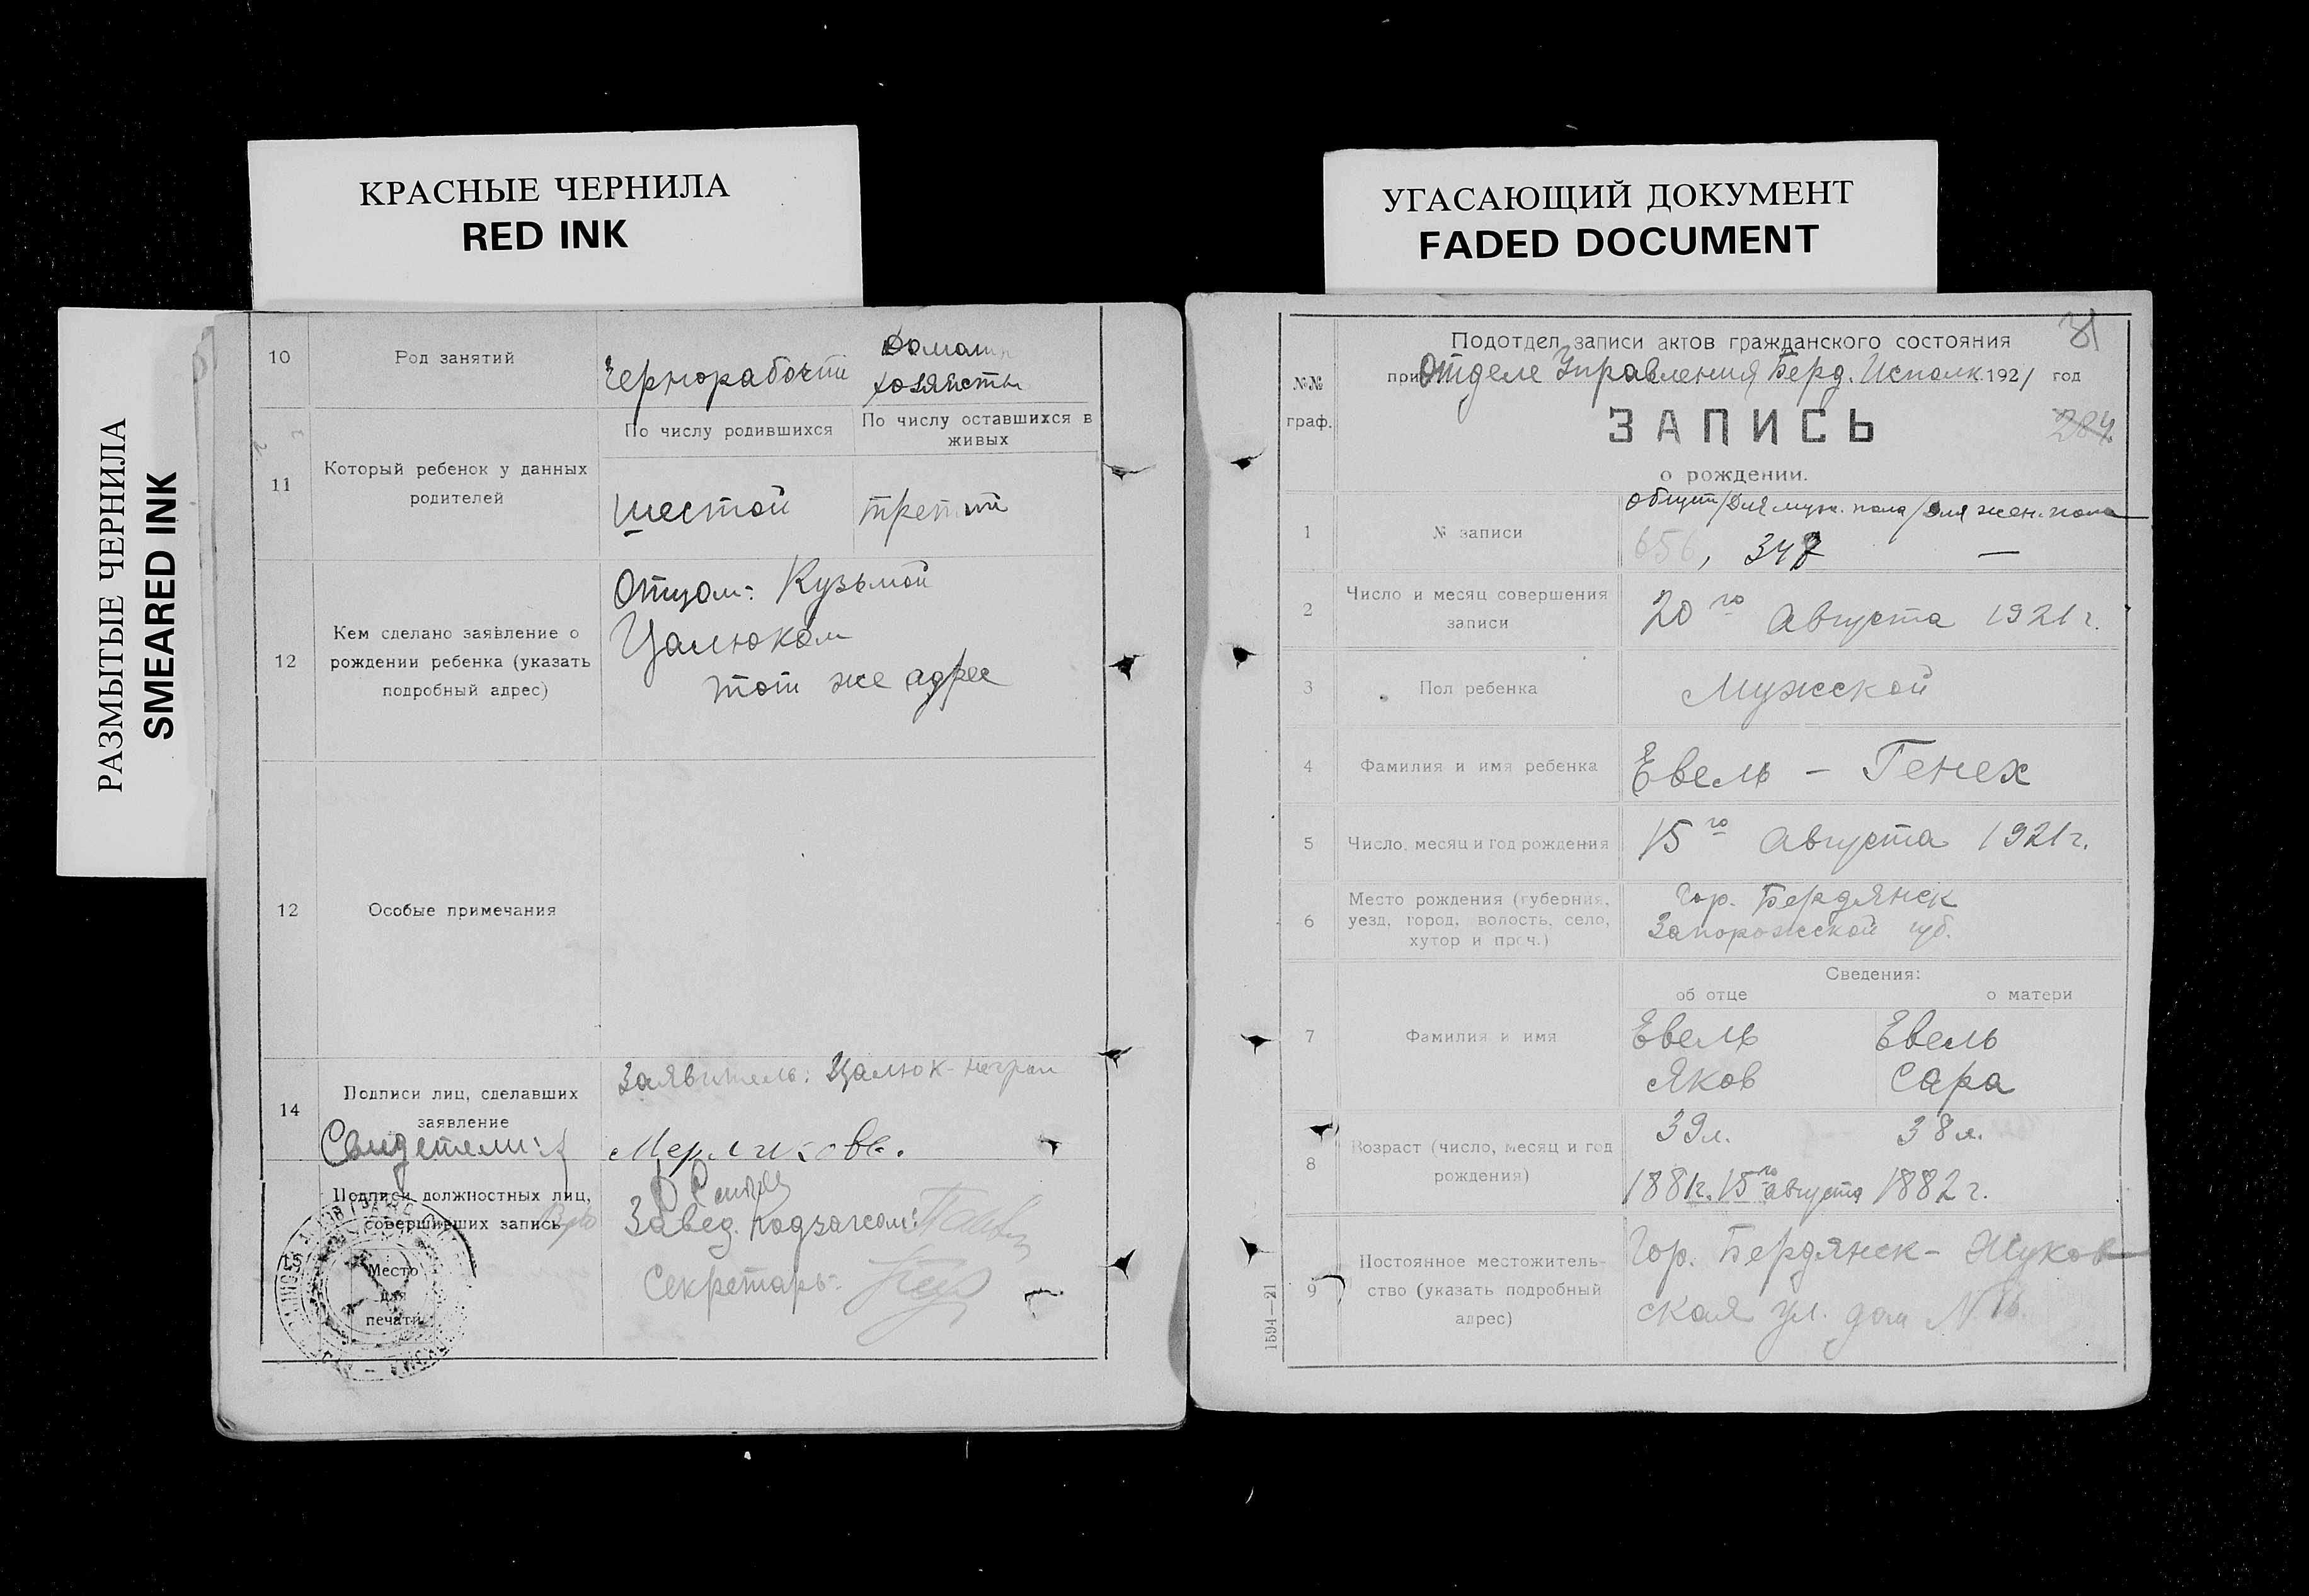 КРАСНЫЕ ЧЕРНИЛА
RED INK
РАЗМЫТЫЕ ЧЕРНИЛА
SMEARED INK
10
Род занятий
Чернорабочий
Домашн
хозяйство
11
Который ребенок у данных
родителей
По числу родившихся
По числу оставшихся в
живых
шестой
третий
12
Кем сделано заявление о
рождении ребенка (указать
подробный адрес)
Отцом: Кузьмой
Цалюком
тот же адрес
12
Особые примечания
14
Подписи лиц, сделавших
заявление
Заявитель: Цалюк-неграм
Свидетели:
Подписи должностных лиц,
совершивших запись
Завед. подзагсом:
Секретарь:
Место
для
печати
УГАСАЮЩИЙ ДОКУМЕНТ
FADED DOCUMENT
31
Подотдел записи актов гражданского состояния
при Отделе Управления Берд. Исполк. 1921 год
№№
граф.
ЗАПИСЬ
284
о рождении.
1
№ записи
общий/для муж. пола/для жен. пола
656, 347 —
2
Число и месяц совершения
записи
20го Августа 1921 г.
3
Пол ребенка
Мужской
4
Фамилия и имя ребенка
Евель – Генех
5
Число, месяц и год рождения
15го Августа 1921 г.
6
Место рождения (губерния,
уезд, город, волость, село,
хутор и проч.)
Гор. Бердянск
Запорожской губ.
Сведения:
об отце
о матери
7
Фамилия и имя
Евель
Яков
Евель
Сара
8
Возраст (число, месяц и год
рождения)
39 л.
38 л.
1881г. 15го августа
1882 г.
9
Постоянное местожитель-
ство (указать подробный
адрес)
Гор. Бердянск – Жуков
ская ул. дом №
1594—21